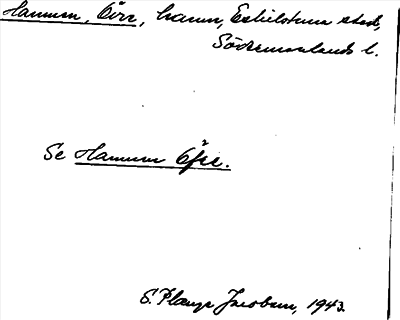 Hamnen, Övr, hamn, Eskilstuna stad,
Södermanlands l.
Se Hamnen Öfre.
S. Plange Jacobson, 1943.